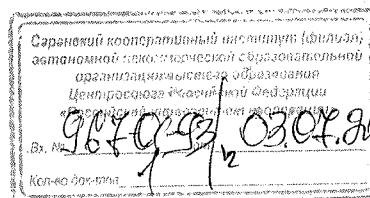 Саранский кооперативный институт (филиал)
автономной некоммерческой образовательной
организации высшего образования
Центросоюза Российской Федерации
«Российский университет кооперации»
Вх. № 03.07.2
Кол-во док-тов